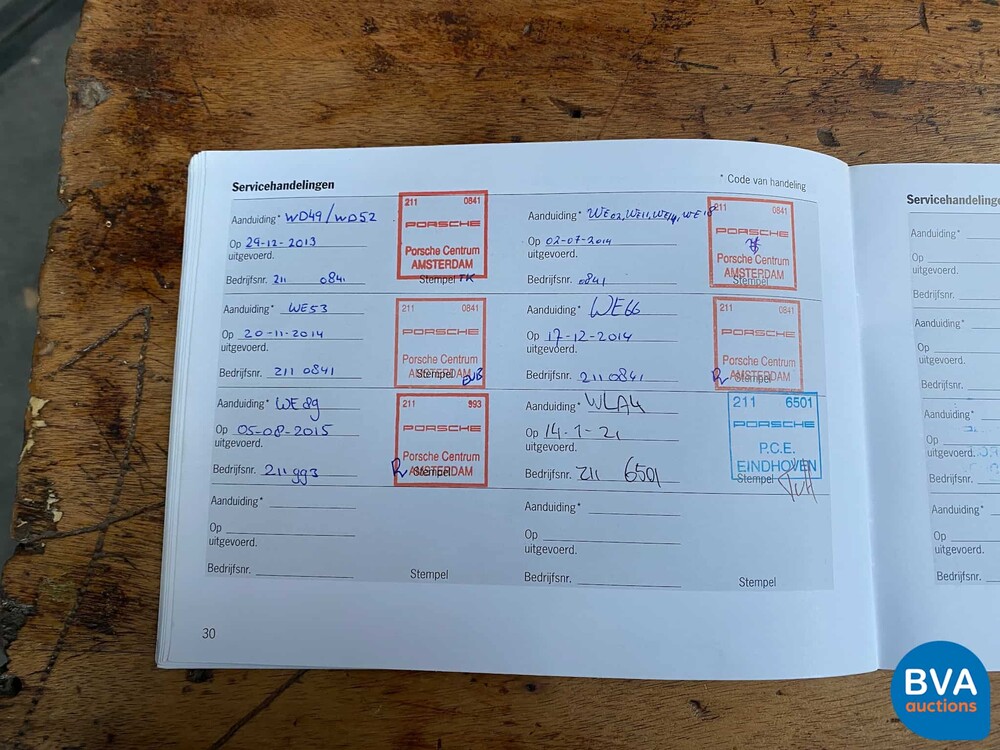 Servicehandelingen
* Code van handeling
Aanduiding* WD49/WD52
Op 29-12-2013
uitgevoerd.
Bedrijfsnr. 211 0841
Stempel TK
211 0841
PORSCHE
Porsche Centrum
AMSTERDAM
Aanduiding* WE02, WE11, WE14, WE18
Op 02-07-2014
uitgevoerd.
Bedrijfsnr. 0841
Stempel
211 0841
PORSCHE
Porsche Centrum
AMSTERDAM
Aanduiding* WE53
Op 20-11-2014
uitgevoerd.
Bedrijfsnr. 211 0841
Stempel
211 0841
PORSCHE
Porsche Centrum
AMSTERDAM
Aanduiding* WE66
Op 17-12-2014
uitgevoerd.
Bedrijfsnr. 211 0841
Stempel
211 0841
PORSCHE
Porsche Centrum
AMSTERDAM
Aanduiding* WE89
Op 05-08-2015
uitgevoerd.
Bedrijfsnr. 211 993
Stempel
211 993
PORSCHE
Porsche Centrum
AMSTERDAM
Aanduiding* WLA4
Op 14-1-21
uitgevoerd.
Bedrijfsnr. 211 6501
Stempel
211 6501
PORSCHE
P.C.E.
EINDHOVEN
Aanduiding*
Op
uitgevoerd.
Bedrijfsnr.
Stempel
Aanduiding*
Op
uitgevoerd.
Bedrijfsnr.
Stempel
30
Servicehandelinge
Aanduiding*
Op
uitgevoerd.
Bedrijfsnr.
Aanduiding*
Op
uitgevoerd.
Bedrijfsnr.
Aanduiding*
Op
uitgevoerd.
Bedrijfsnr.
Aanduiding*
Op
uitgevoerd.
Bedrijfsnr.
BVA
auctions